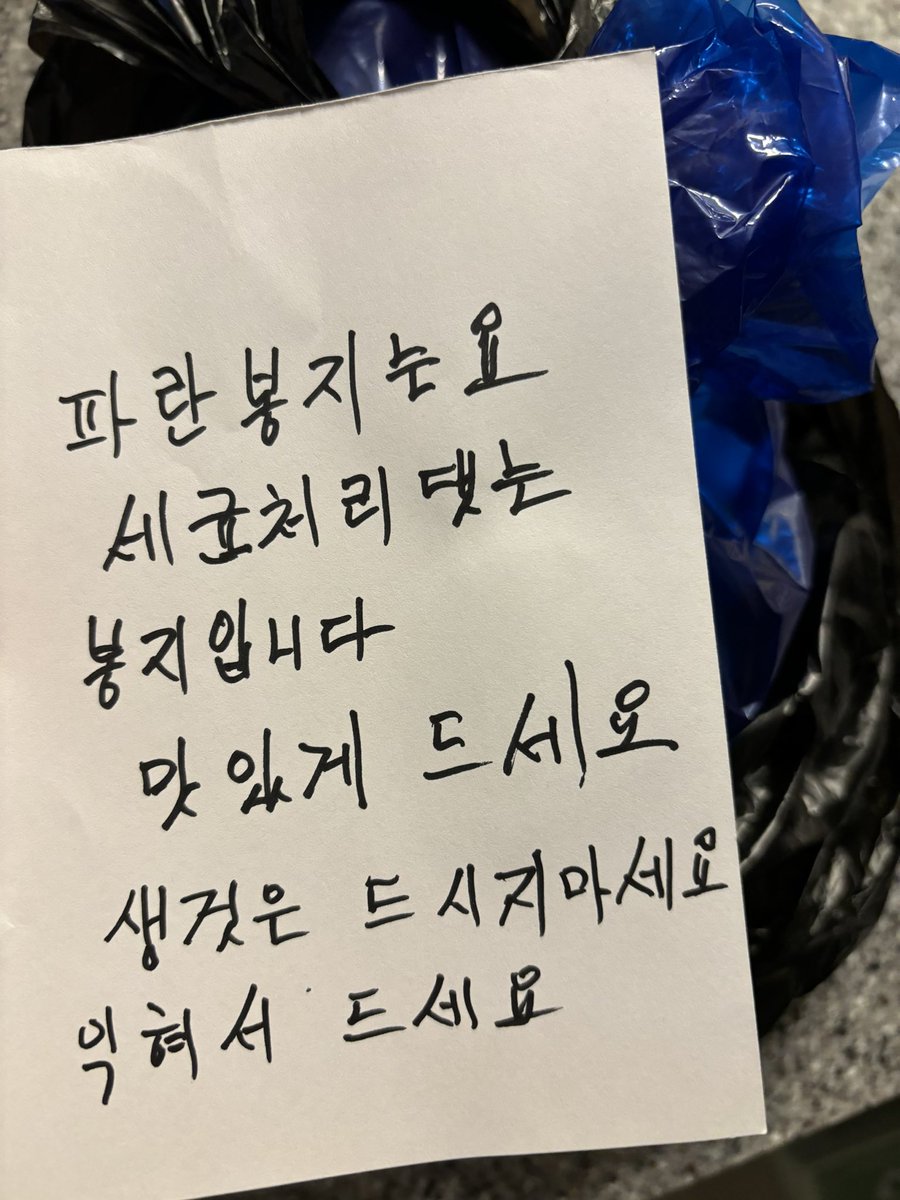 파란봉지는요
세균처리 댖는
봉지입니다
맛있게 드세요
생것은 드시지마세요
익혀서 드세요